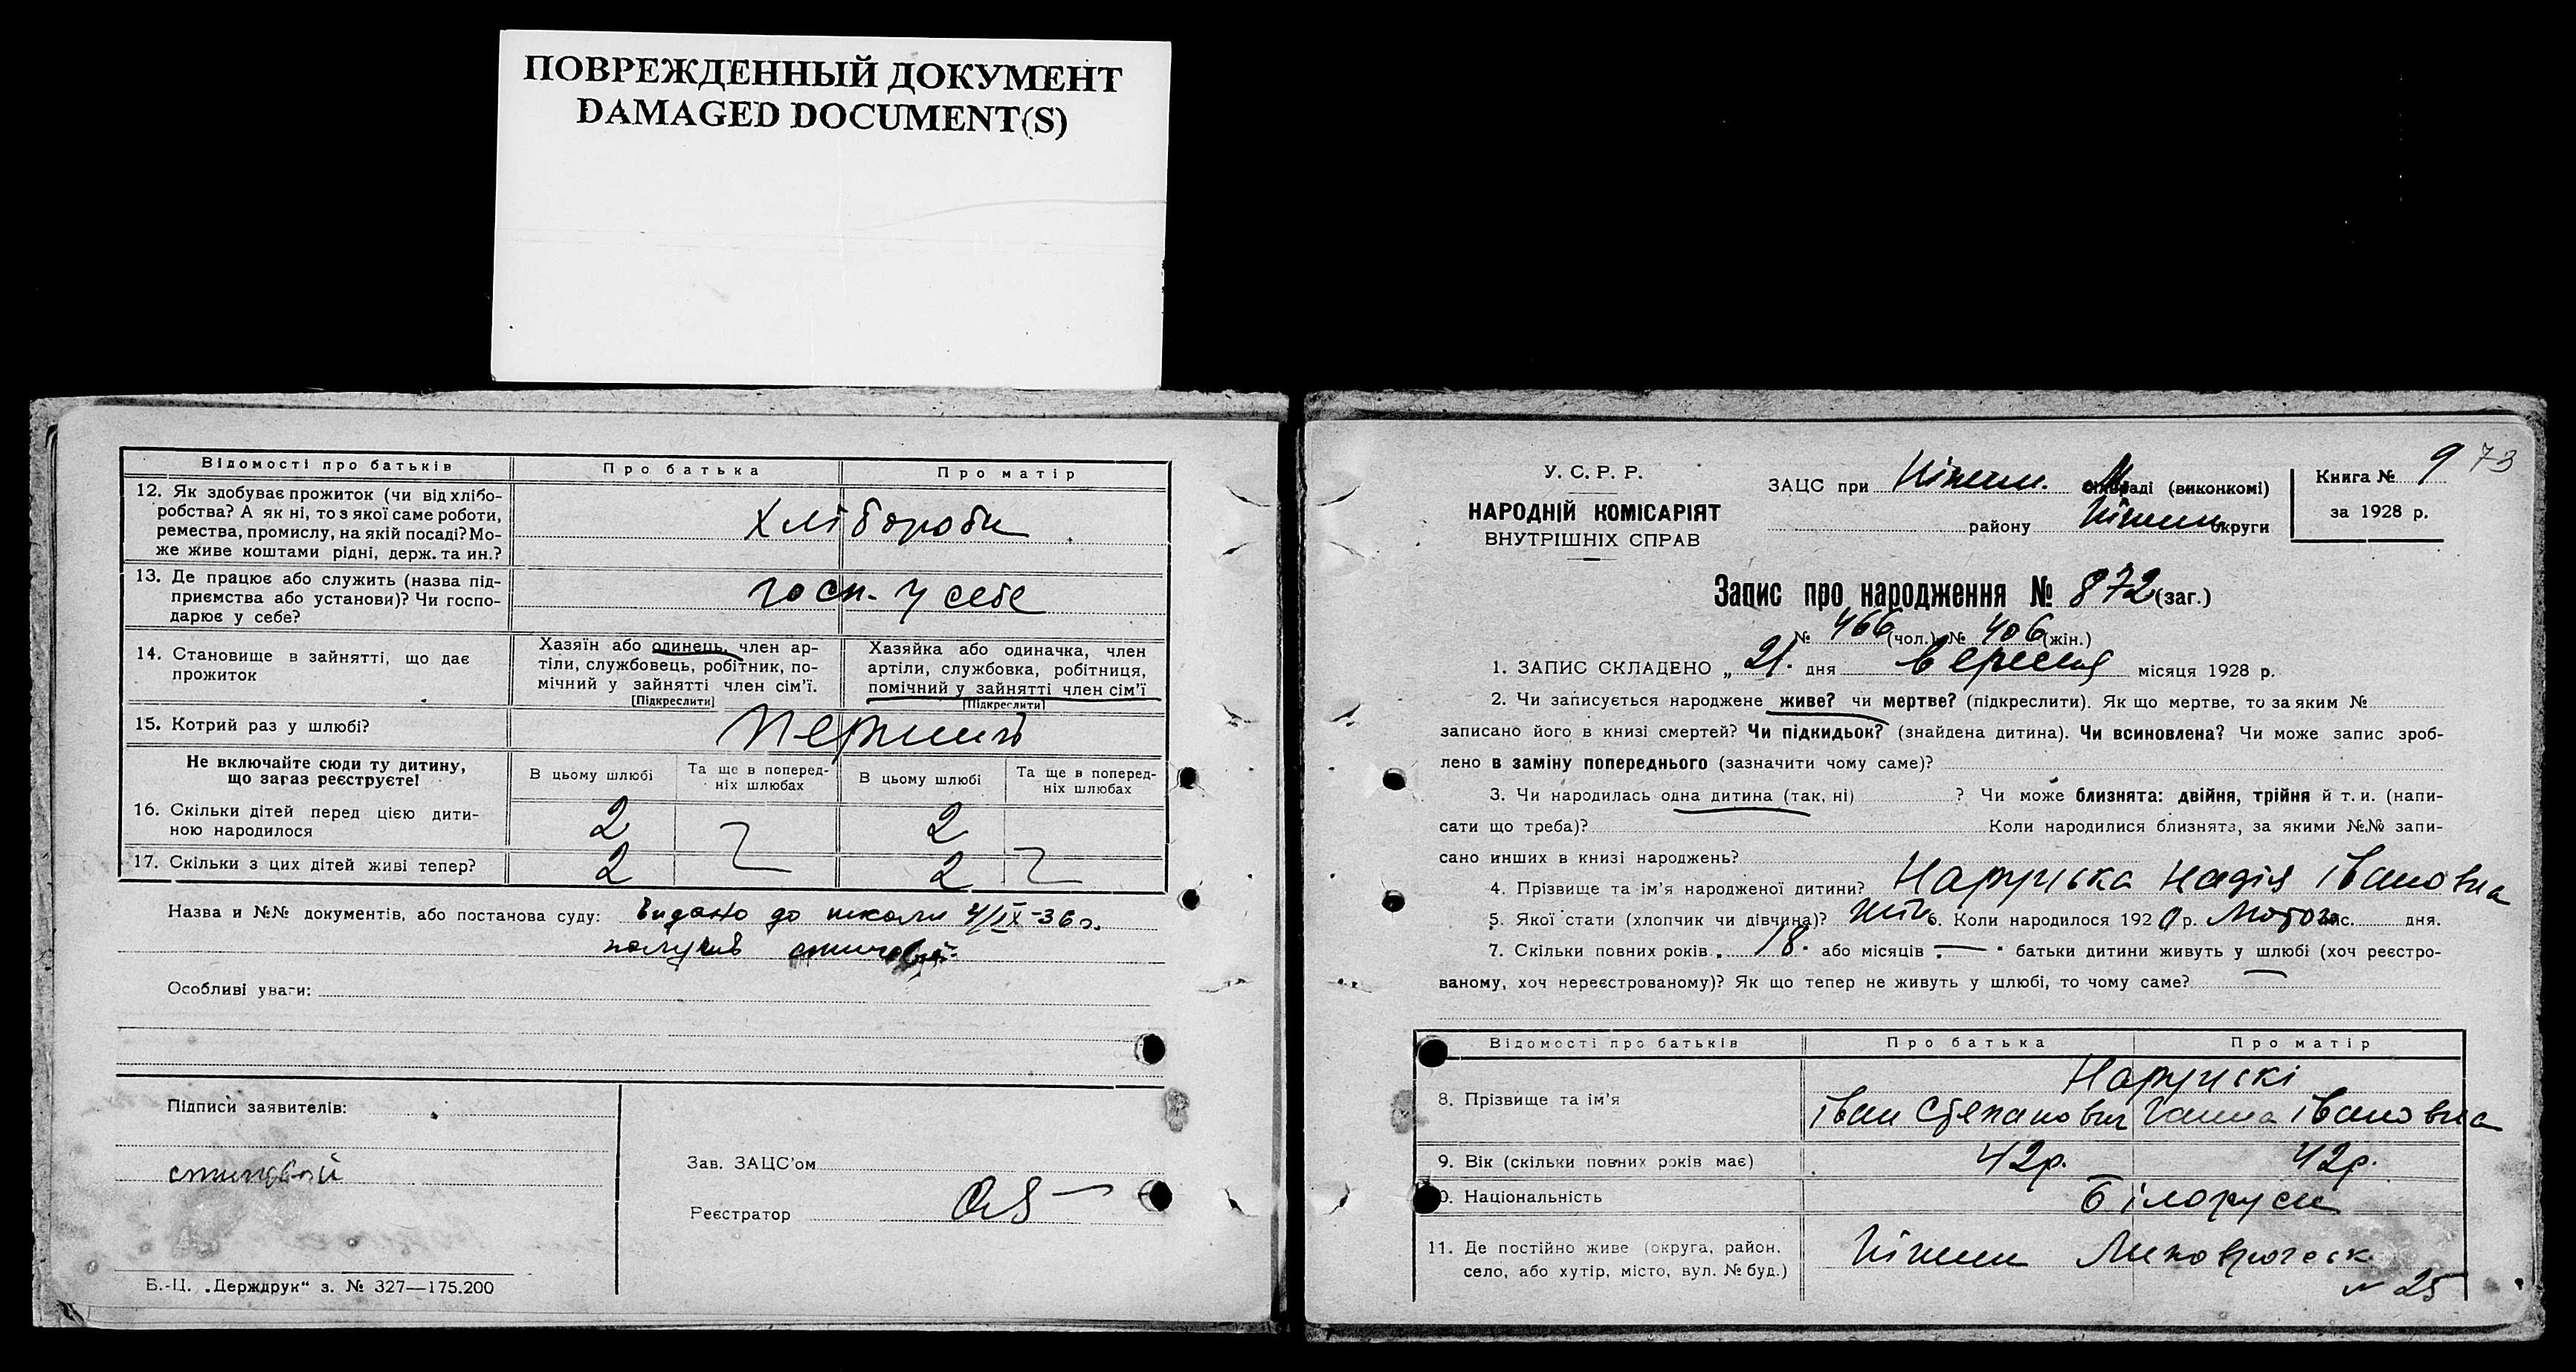 ПОВРЕЖДЕННЫЙ ДОКУМЕНТ
DAMAGED DOCUMENT(S)
Відомості про батьків Про батька Про матір
12. Як здобуває прожиток (чи від хлібо-
робства? А як ні, то з якої саме роботи,
ремества, промислу, на якій посаді? Мо-
же живе коштами рідні, держ. та ин.?
хлібороби
13. Де працює або служить (назва під-
приємства або установи)? Чи госпо-
дарює у себе?
госп. у себе
14. Становище в зайнятті, що дає
прожиток
Хазяїн або одинець, член ар-
тіли, службовець, робітник, по-
мічний у зайнятті член сім'ї.
[Підкреслити]
Хазяйка або одиначка, член
артіли, службовка, робітниця,
помічний у зайнятті член сім'ї
[Підкреслити]
15. Котрий раз у шлюбі?
Не включайте сюди ту дитину,
що загаз реєструєте!
В цьому шлюбі Та ще в поперед-
ніх шлюбах В цьому шлюбі Та ще в поперед-
ніх шлюбах
16. Скільки дітей перед цією дити-
ною народилося 2 2
17. Скільки з цих дітей живі тепер? 2 2
Назва и №№ документів, або постанова суду: Видано до школи 4/IX-36 р.
Особливі уваги:
Підписи заявителів:
Зав. ЗАЦС'ом
Реєстратор
Б.-Ц. „Держдрук“ з. № 327—175.200
У. С. Р. Р.
НАРОДНІЙ КОМІСАРІЯТ
ВНУТРІШНІХ СПРАВ
ЗАЦС при Ніжин. М раді (виконкомі)
району Ніжин округи
Книга № 9 73
за 1928 р.
Запис про народження № 872 (заг.)
№ 466 (чол.) № 406 (жін.)
1. ЗАПИС СКЛАДЕНО „ 21. дня вересня місяця 1928 р.
2. Чи записується народжене живе? чи мертве? (підкреслити). Як що мертве, то за яким №
записано його в книзі смертей? Чи підкидьок? (знайдена дитина). Чи всиновлена? Чи може запис зроб-
лено в заміну попереднього (зазначити чому саме)?
3. Чи народилась одна дитина (так, ні) ? Чи може близнята: двійня, трійня й т. и. (напи-
сати що треба)? Коли народилися близнята, за якими №№ запи-
сано инших в книзі народжень?
4. Прізвище та ім'я народженої дитини? Надія Івановна
5. Якої стати (хлопчик чи дівчина)? жін. 6. Коли народилося 1920 р. Лютого міс. дня.
7. Скільки повних років „ 18 " або місяців „ — " батьки дитини живуть у шлюбі (хоч реєстро-
ваному, хоч нереєстрованому)? Як що тепер не живуть у шлюбі, то чому саме? —
Відомості про батьків Про батька Про матір
8. Прізвище та ім'я
Іван Степанович Ганна Івановна
9. Вік (скільки повних років має) 42р. 42р.
10. Національність Білоруси
11. Де постійно живе (округа, район,
село, або хутір, місто, вул. № буд.)
Ніжин
№ 25